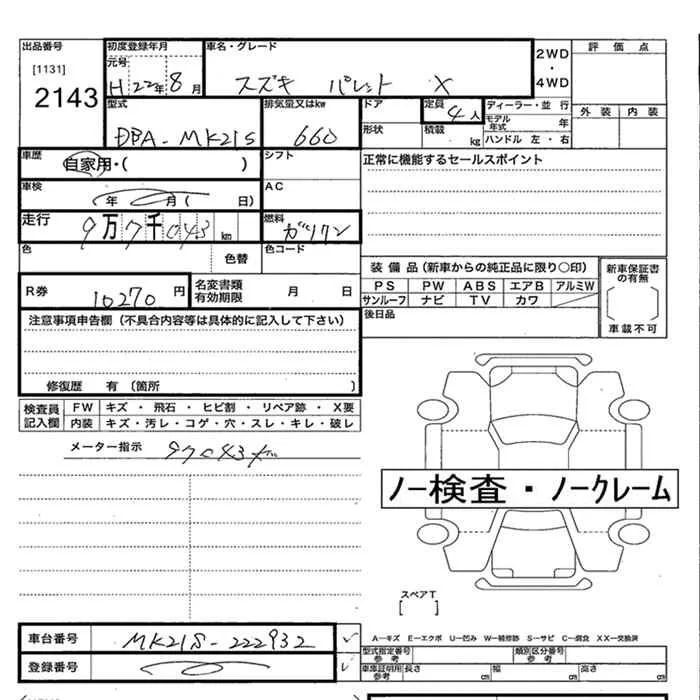 出品番号 初度登録年月 車名・グレード 評価点
[1131] 元号 2WD
2143 H 22年 8月 スズキ パレット X ・
4WD
型式 排気量又はkw ドア 定員 4人 ディーラー・並行 外装 内装
DBA-MK21S 660 形状 積載 kg モデル年式 年
ハンドル 左・右
車歴 自家用・( ) シフト 正常に機能するセールスポイント
車検 年 月( 日) AC
走行 9万7千043km 燃料 ガソリン
色 色替 色コード
装備品(新車からの純正品に限り○印) 新車保証書の有無
PS PW ABS エアB アルミW
R券 10270円 名変書類有効期限 月 日 サンルーフ ナビ TV カワ
後日品 車載不可
注意事項申告欄(不具合内容等は具体的に記入して下さい)
修復歴 有 〔箇所 〕
検査員記入欄 FW キズ・飛石・ヒビ割・リペア跡・X要
内装 キズ・汚レ・コゲ・穴・スレ・キレ・破レ
メーター指示 97043km
ノー検査・ノークレーム
スペアT
[ ]
車台番号 MK21S-222932 ✓
A―キズ E―エクボ U―凹み W―補修跡 S―サビ C―腐食 XX―交換済
型式指定番号 参考 類別区分番号 参考
登録番号 ✓ 車庫証明用参考 長さ cm 幅 cm 高さ cm